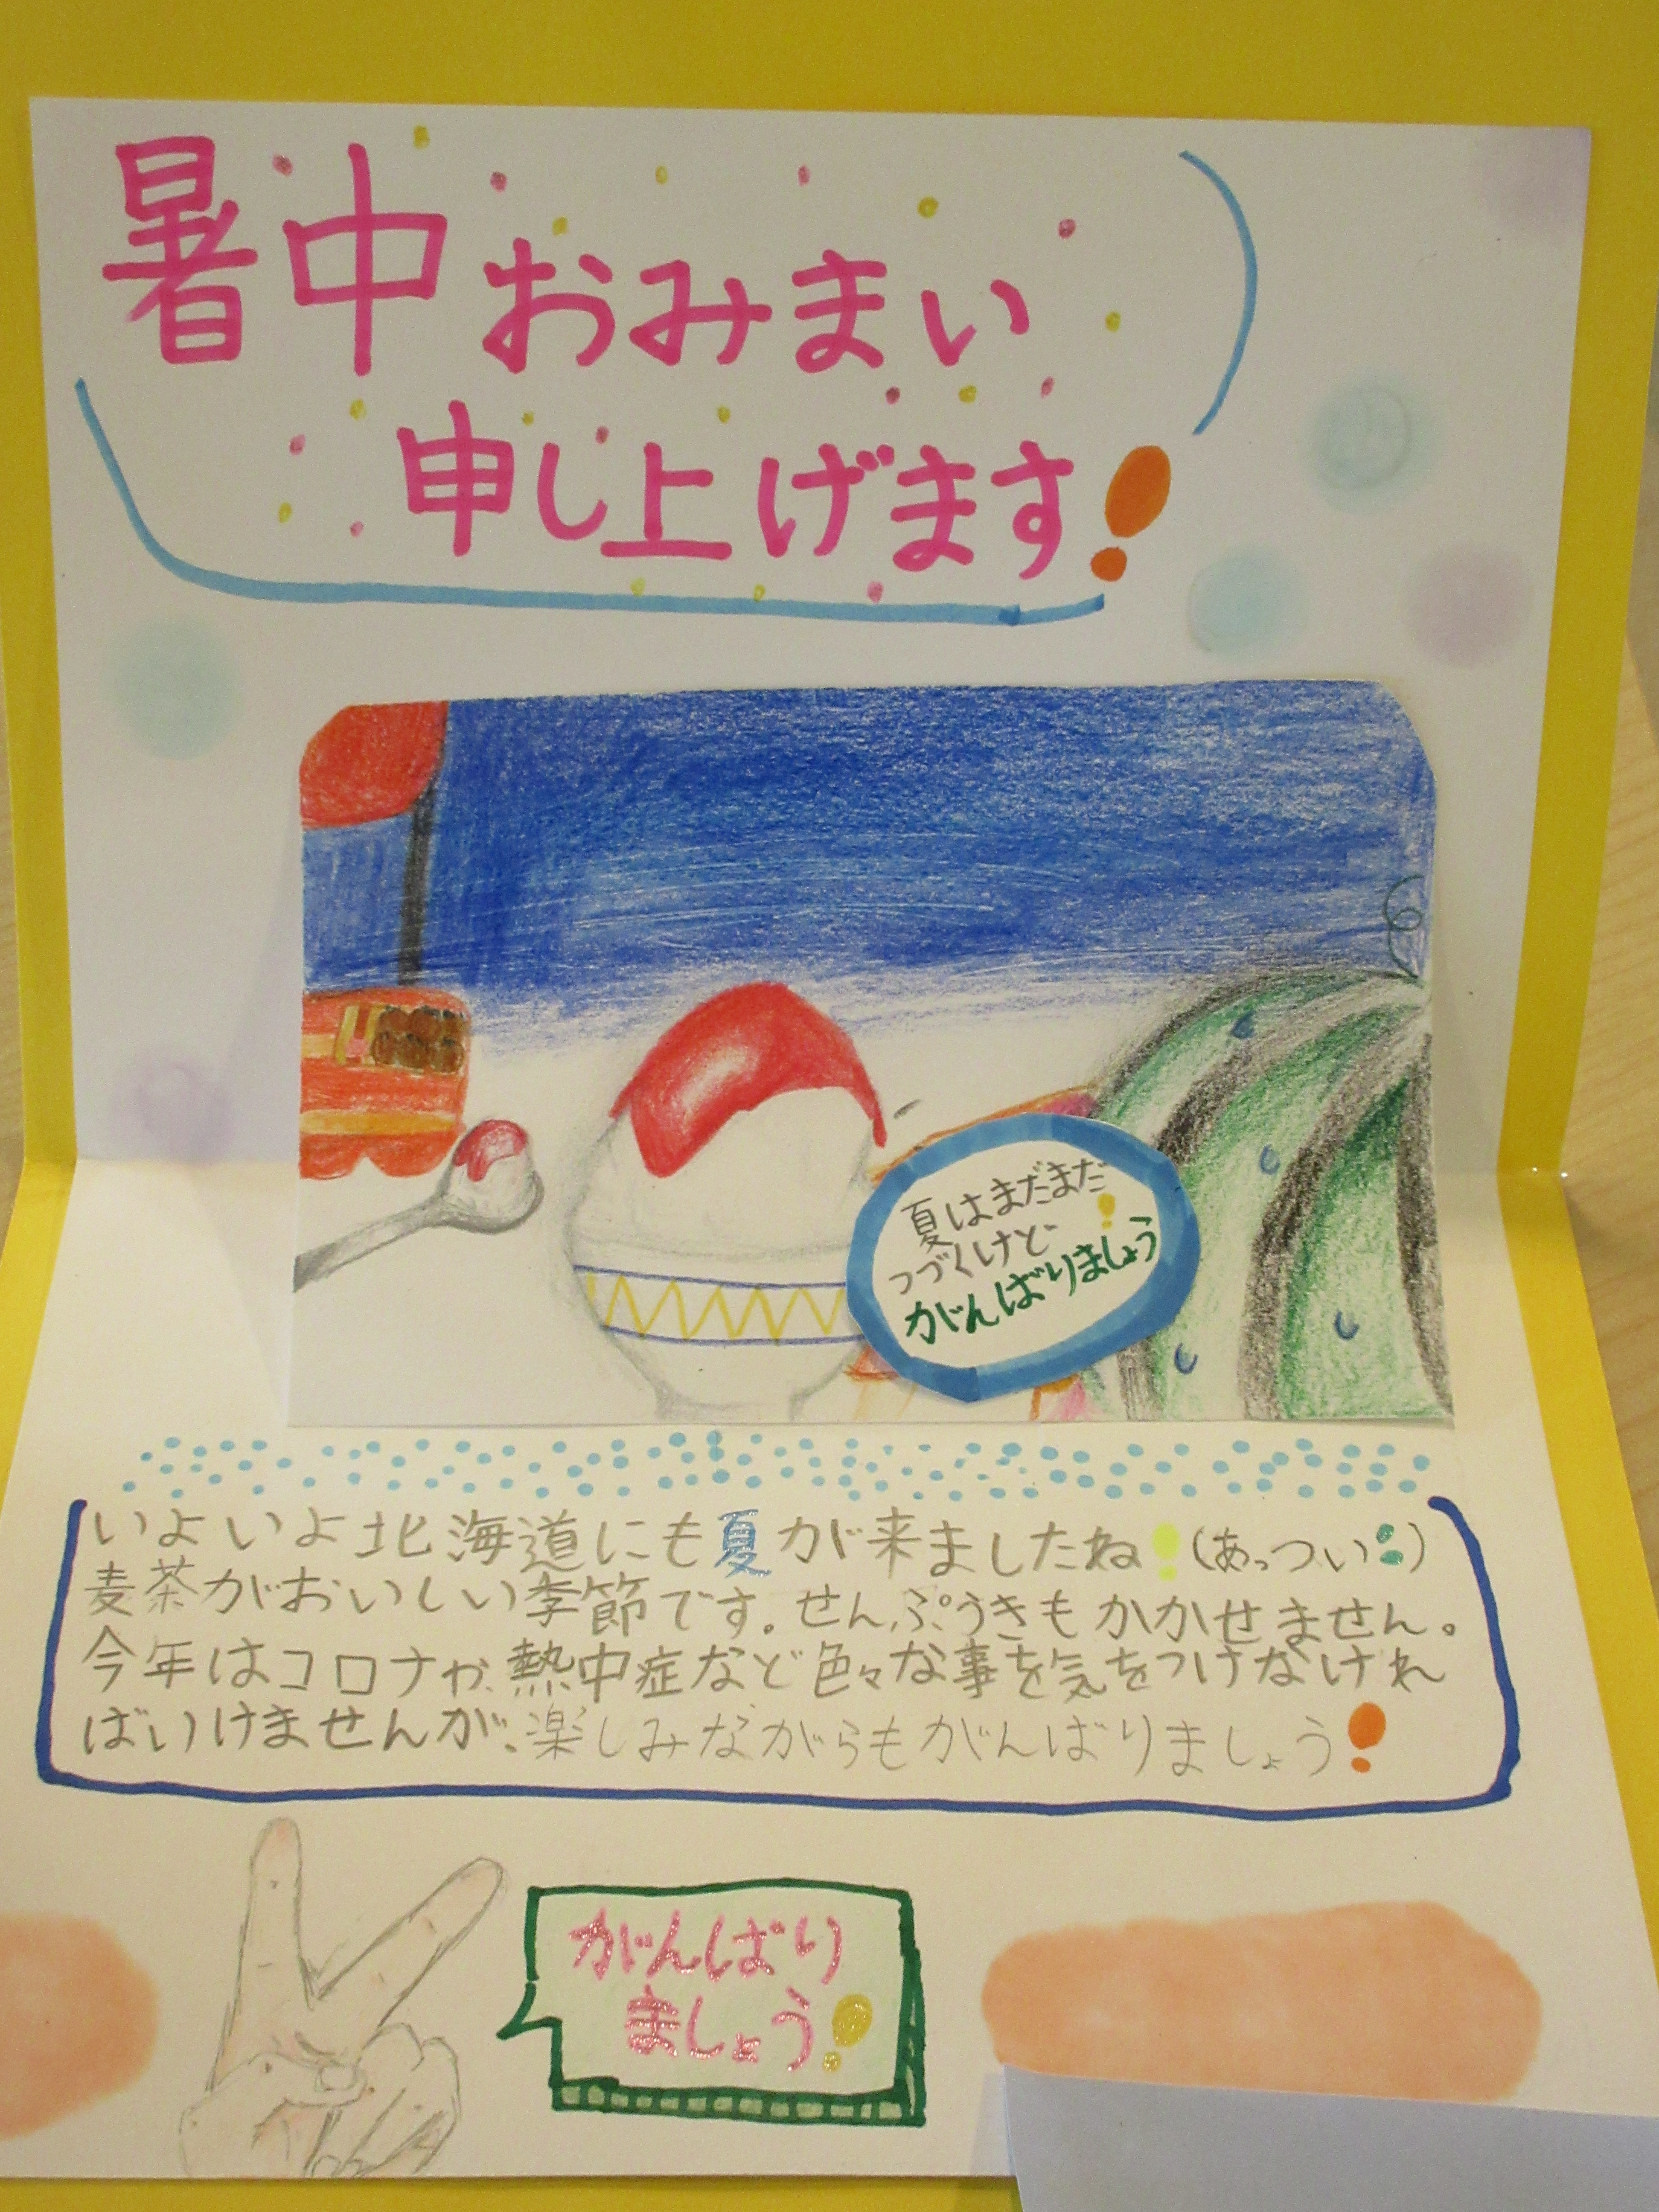 暑中おみまい
申し上げます!
夏はまだまだ
つづくけど!
がんばりましょう
いよいよ北海道にも夏が来ましたね!(あっつい:)
麦茶がおいしい季節です。せんぷうきもかかせません。
今年はコロナや、熱中症など色々な事を気をつけなけれ
ばいけませんが、楽しみながらもがんばりましょう!
がんばり
ましょう!